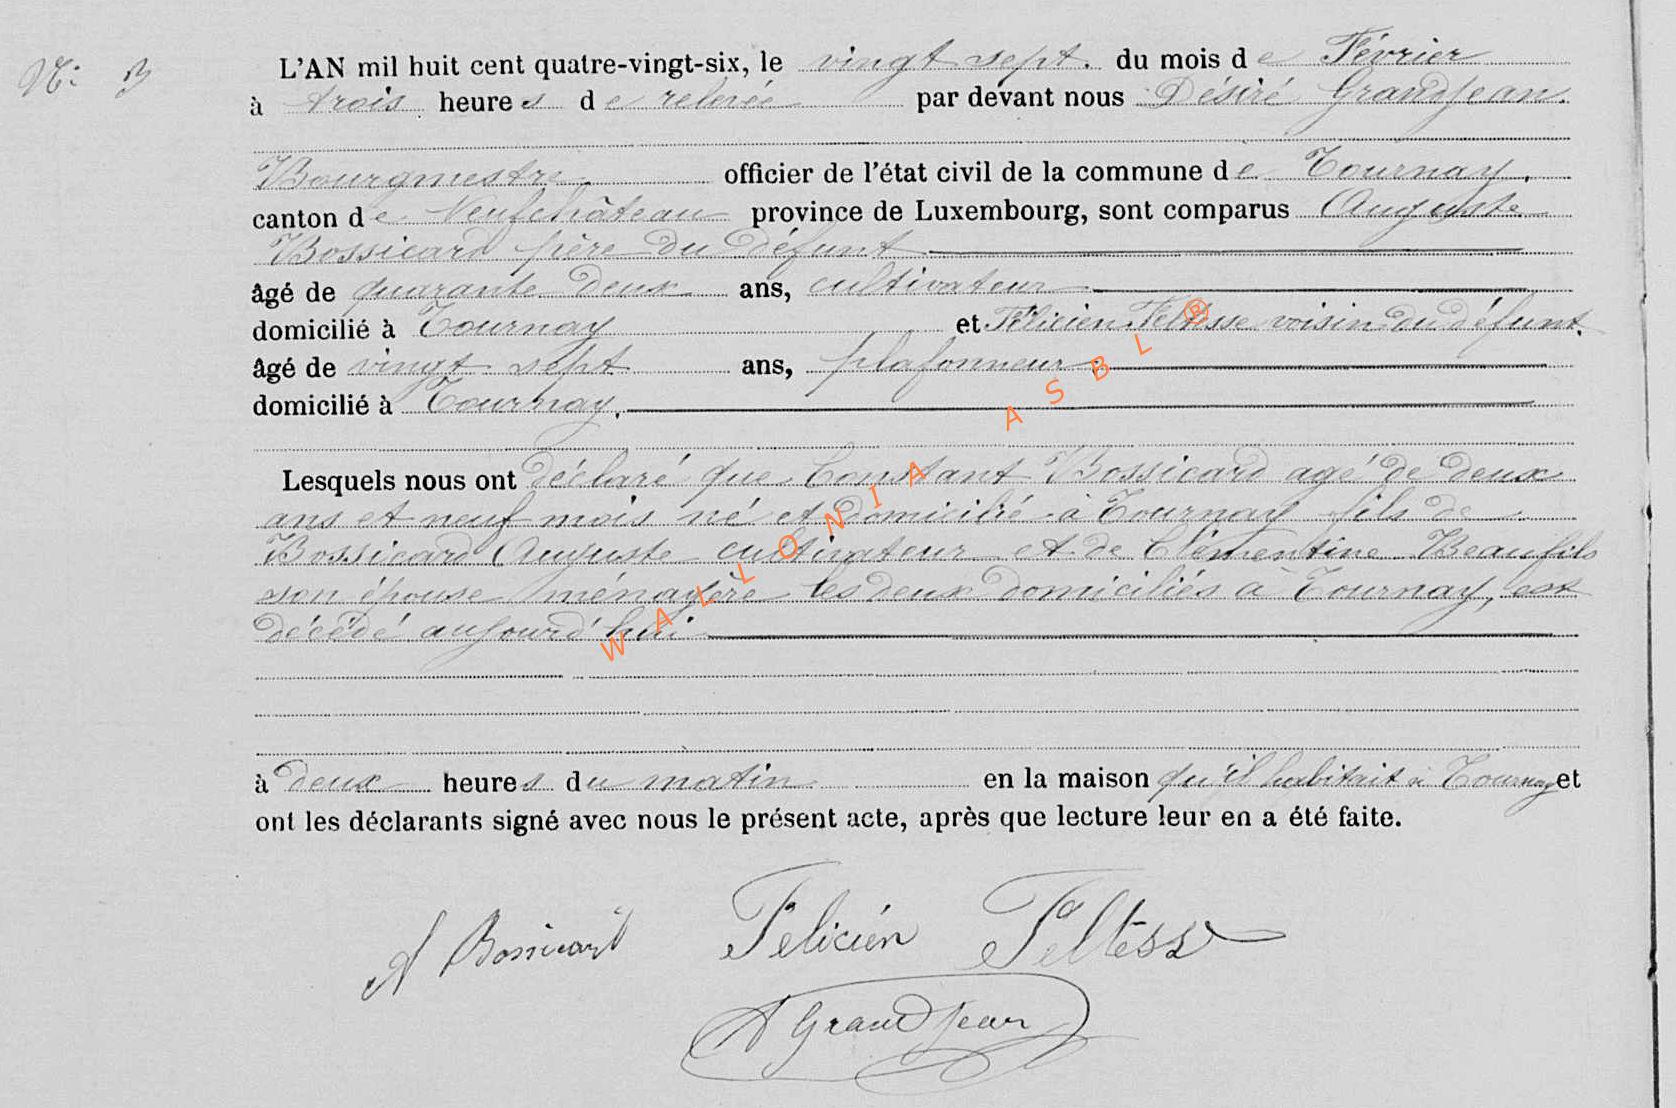 N: 3
L'AN mil huit cent quatre-vingt-six, le vingt sept. du mois de Février
à trois heures de relevée par devant nous Désiré Grandjean.
Bourgmestre officier de l'état civil de la commune de Tournay,
canton de Neufchâteau province de Luxembourg, sont comparus Auguste
Bossicard père du défunt
âgé de quarante deux ans, cultivateur
domicilié à Tournay et Félicien Feltesse voisin du défunt.
âgé de vingt sept ans, plafonneur
domicilié à Tournay.
Lesquels nous ont déclaré que Constant Bossicard agé de deux
ans et neuf mois né et domicilié à Tournay fils de
Bossicard Auguste cultivateur et de Clémentine Beaufils
son épouse ménagère les deux domiciliés à Tournay, est
décédé aujourd'hui
à deux heures du matin en la maison qu'il habitait à Tournay et
ont les déclarants signé avec nous le présent acte, après que lecture leur en a été faite.
A Bossicart Felicién Feltess
Grandjean
WALLONIA ASBL ®